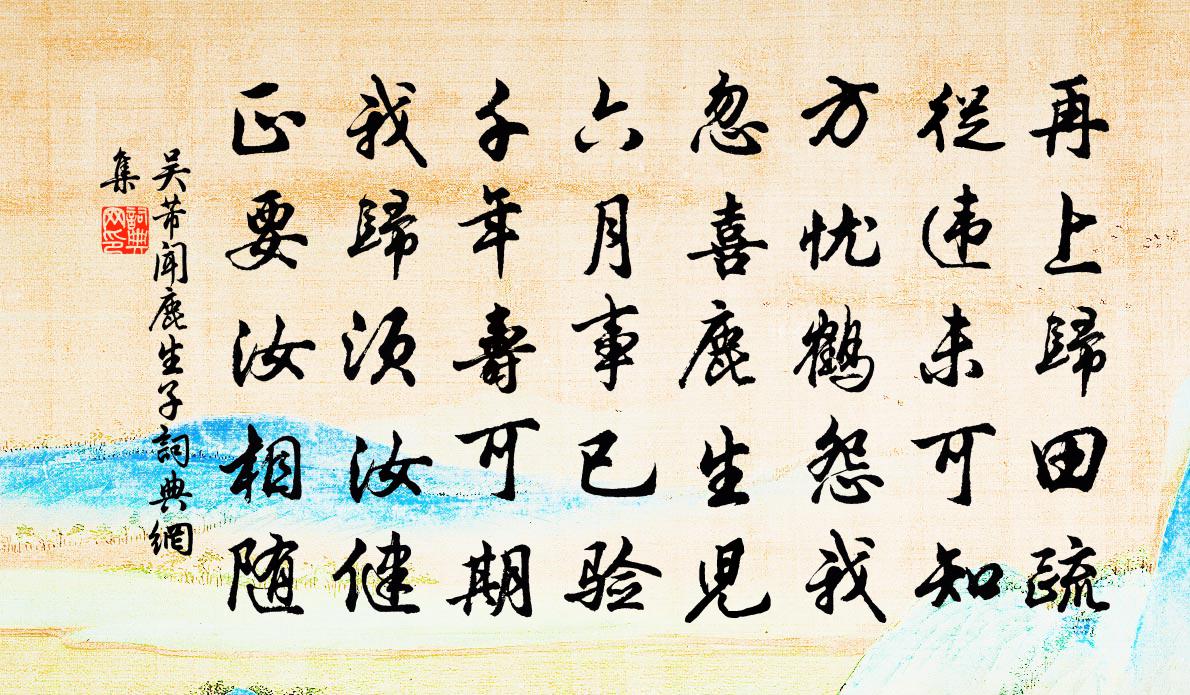 再上歸田疏
從违未可知
方忧鶴怨我
忽喜鹿生児
六月事已验
千年壽可期
我歸须汝健
正要汝相随
吴芾闻鹿生子詞典網
集
詞典网印